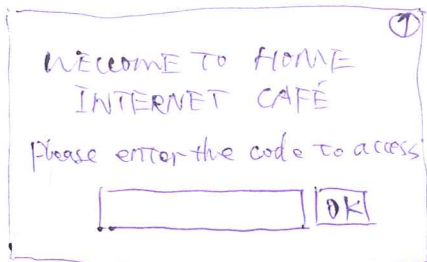 1
WELCOME TO HOME
INTERNET CAFÉ
Please enter the code to access
OK